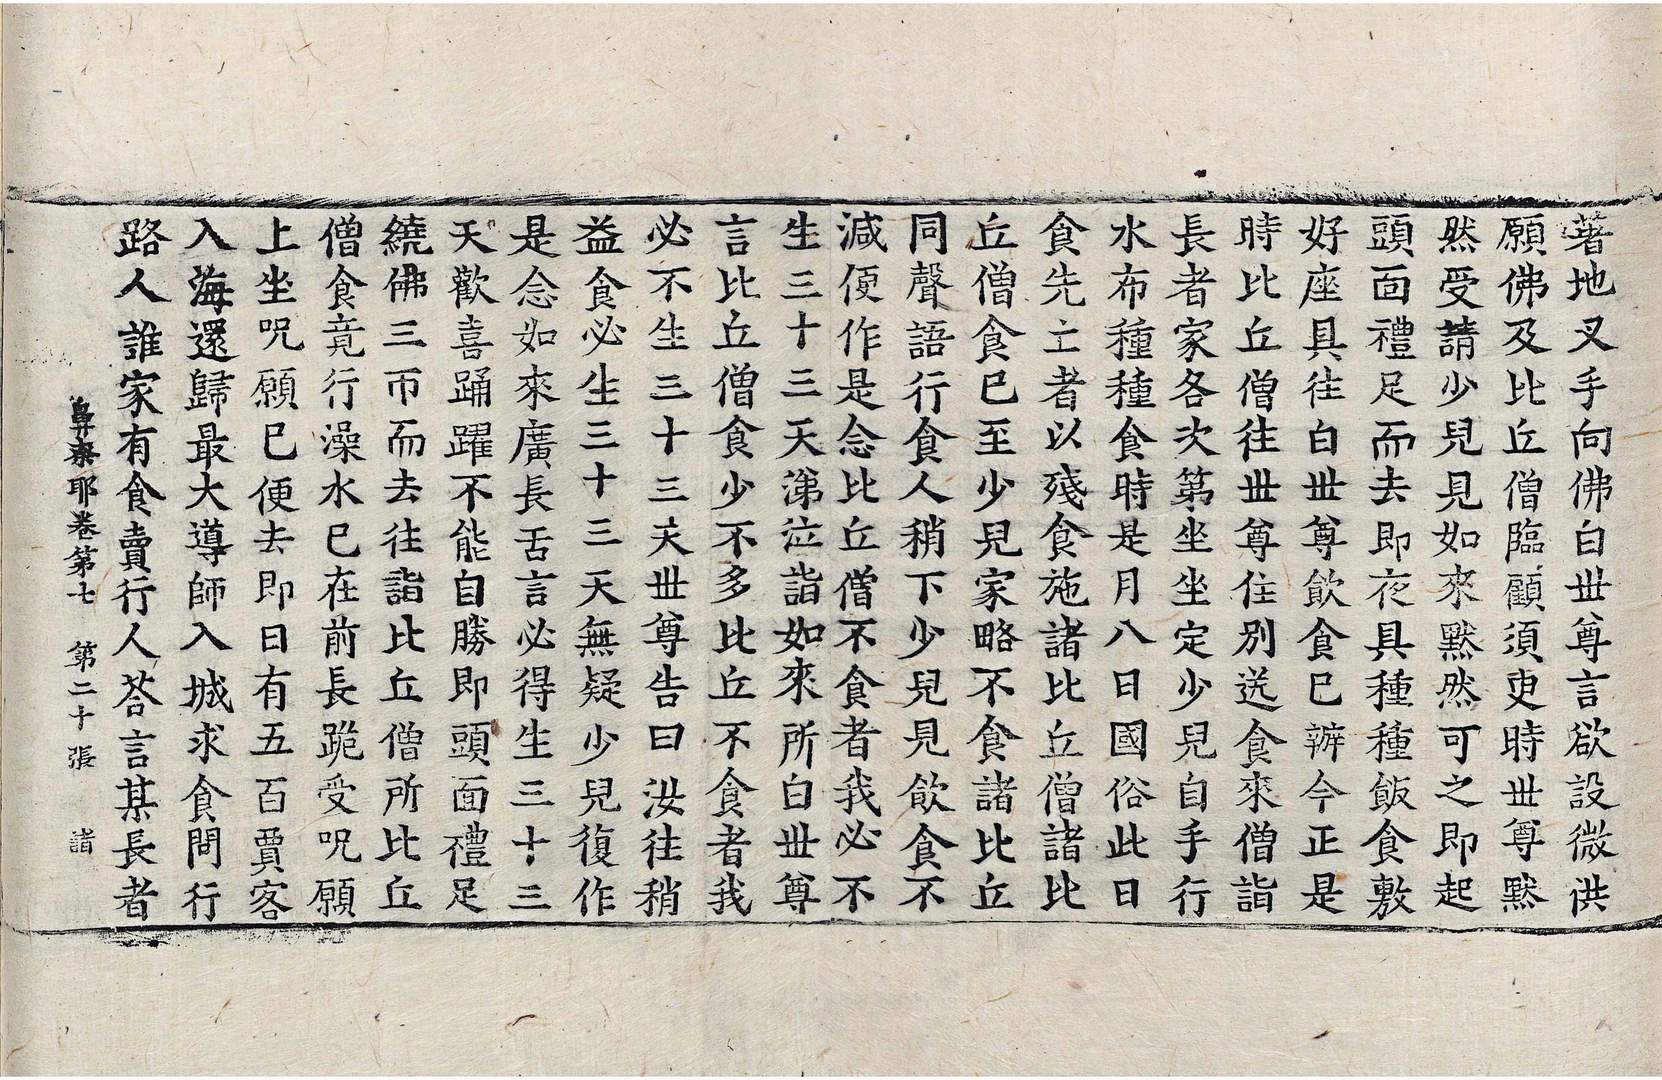 著地叉手向佛白世尊言欲設微供
願佛及比丘僧臨顧須臾時世尊默
然受請少兒見如來默然可之即起
頭面禮足而去即夜具種種飯食敷
好座具往白世尊飲食已辦今正是
時比丘僧往世尊住別送食來僧詣
長者家各次第坐坐定少兒自手行
水布種種食時是月八日國俗此日
食先亡者以殘食施諸比丘僧諸比
丘僧食已至少兒家略不食諸比丘
同聲語行食人稍下少兒見飲食不
減便作是念比丘僧不食者我必不
生三十三天涕泣詣如來所白世尊
言比丘僧食少不多比丘不食者我
必不生三十三天世尊告曰汝往稍
益食必生三十三天無疑少兒復作
是念如來廣長舌言必得生三十三
天歡喜踊躍不能自勝即頭面禮足
繞佛三帀而去往詣比丘僧所比丘
僧食竟行澡水已在前長跪受呪願
上坐呪願已便去即日有五百賈客
入海還歸最大導師入城求食問行
路人誰家有食賣行人荅言某長者
鼻柰耶卷第七 第二十張 諸